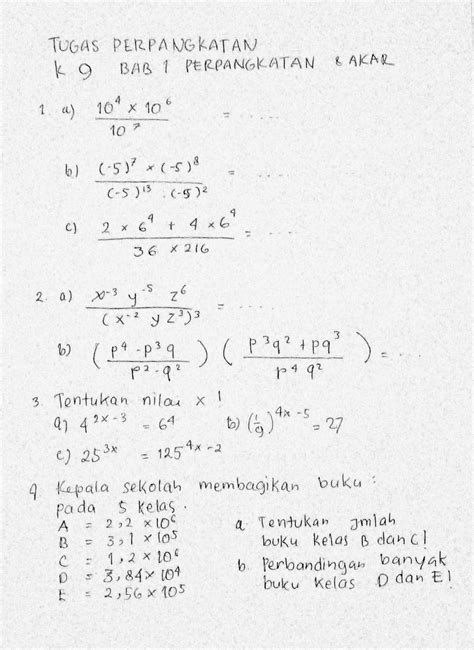 TUGAS PERPANGKATAN
K 9 BAB 1 PERPANGKATAN & AKAR
1 a) (10⁴ × 10⁶) / 10⁷ = ....
b) ((-5)⁷ × (-5)⁸) / ((-5)¹³ : (-5)²) = ....
c) (2 × 6⁴ + 4 × 6⁴) / (36 × 216) = ....
2. a) (x⁻³ y⁻⁵ z⁶) / (x⁻² y z³)³ = ....
b) ((p⁴ - p³q) / (p² - q²)) ((p³q² + pq³) / (p⁴ q²)) = ...
3. Tentukan nilai x !
a) 4²ˣ⁻³ = 64 b) (1/9)⁴ˣ⁻⁵ = 27
c) 25³ˣ = 125⁴ˣ⁻²
4. Kepala sekolah membagikan buku :
pada 5 kelas.
A = 2,2 × 10⁶
B = 3,1 × 10⁵
C = 1,2 × 10⁶
D = 3,84 × 10⁴
E = 2,56 × 10⁵
a. Tentukan jmlah
buku kelas B dan C!
b. Perbandingan banyak
buku kelas D dan E!